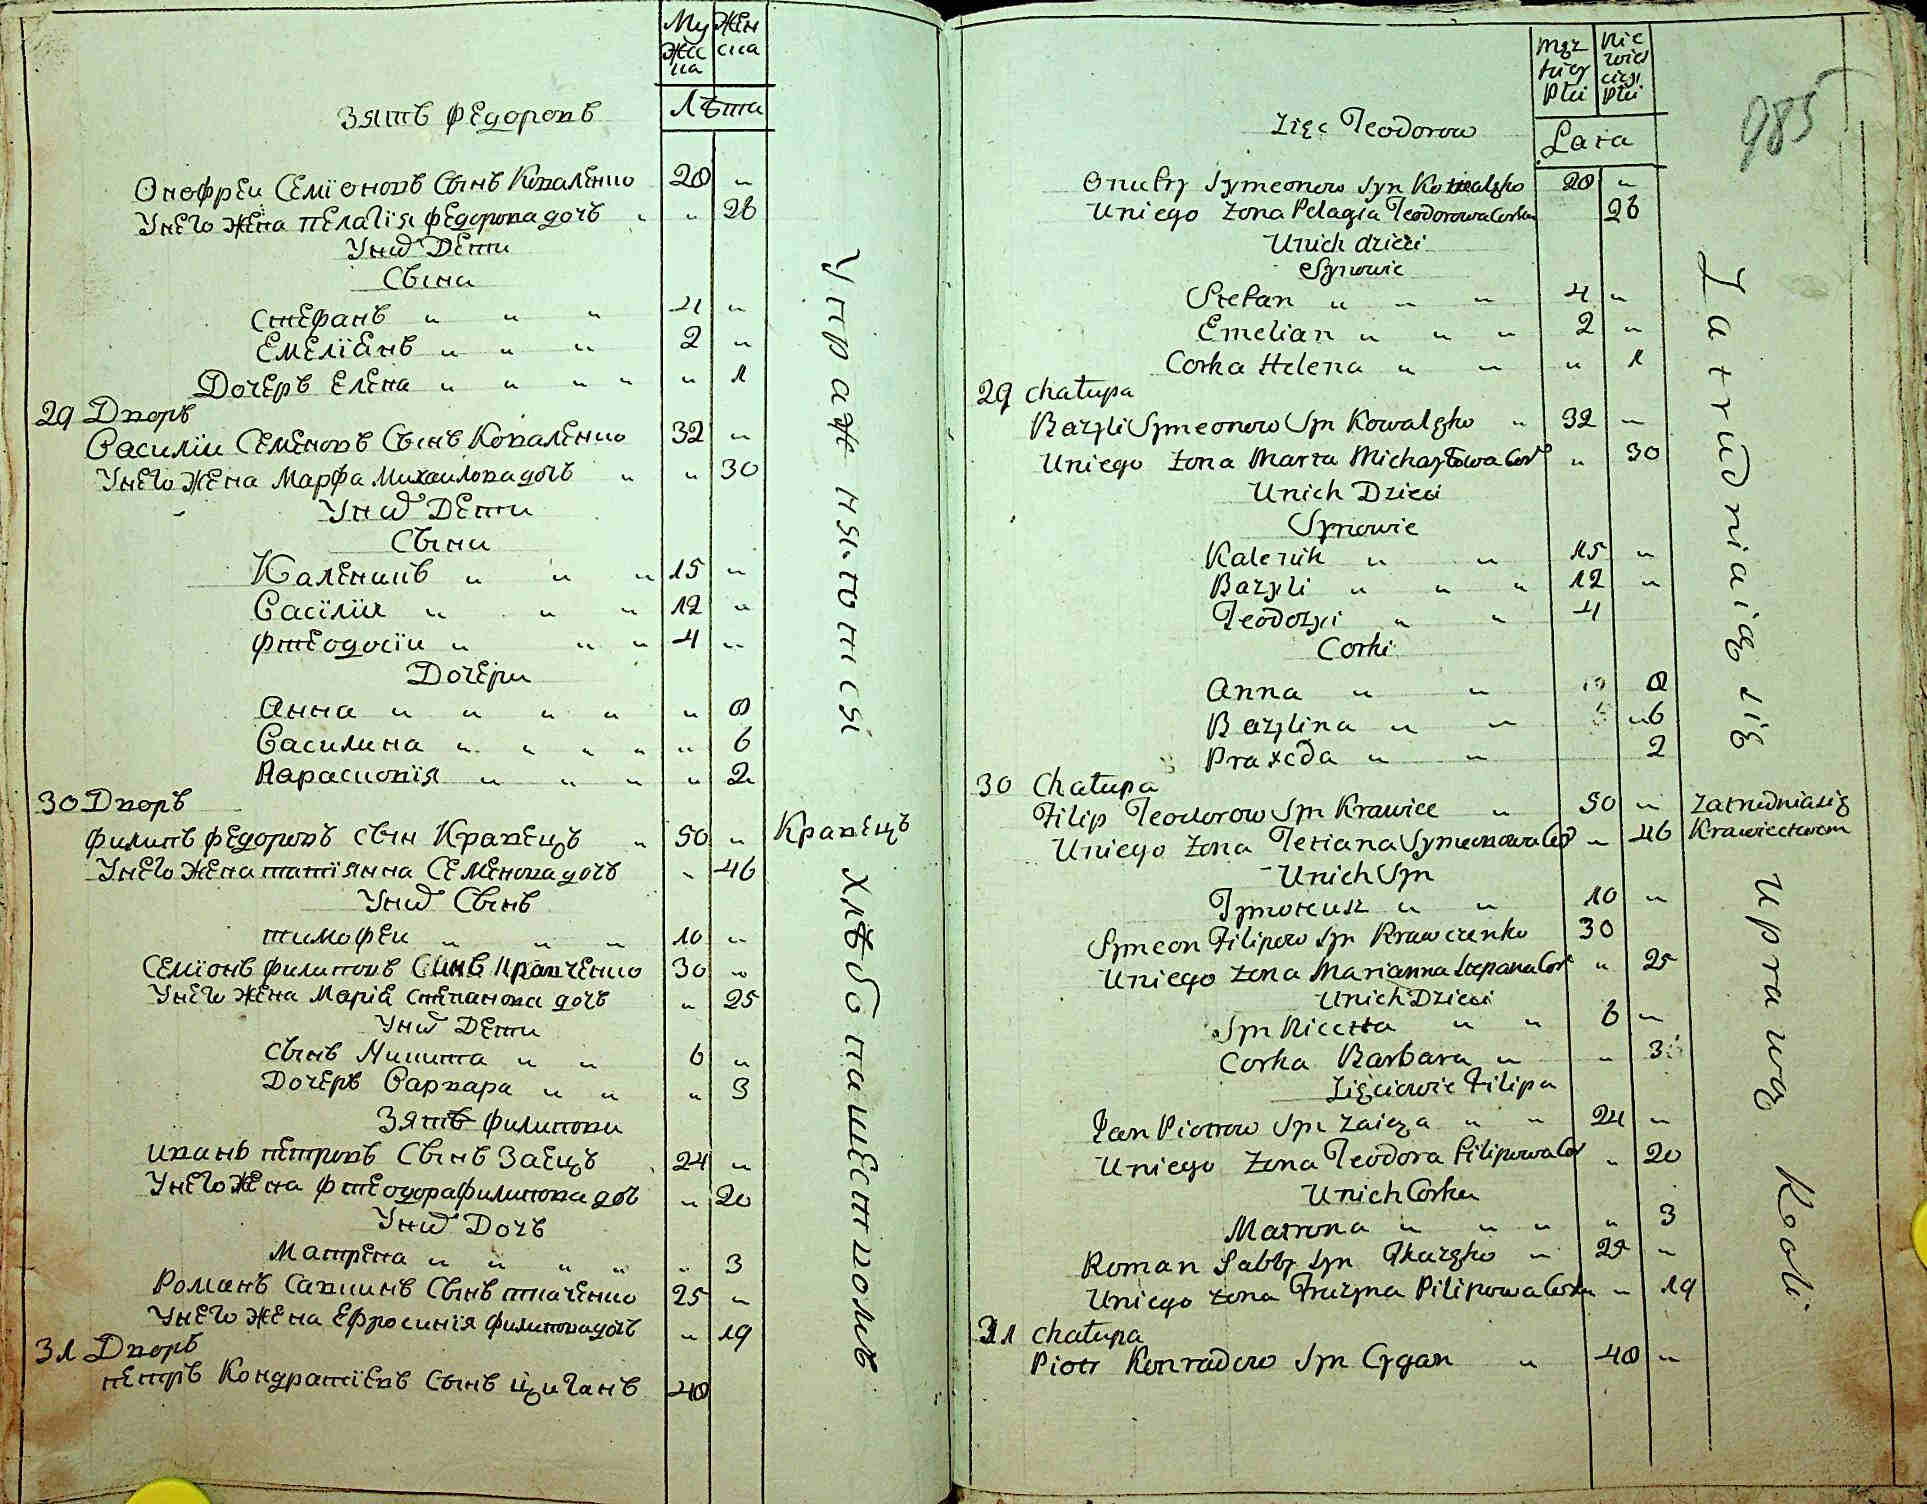 Мужеска
Женска
Лѣта
Зять Федоровъ
Онофреи Семїоновъ Сынъ Коваленко 28 "
Унего жена Пелагїя Федорова дочъ " " 26
Униѿ Дети
Сыни
Стефанъ " " " 4 "
Емелїанъ " " " 2 "
Дочеръ Елена " " " " " 1
29 Дворъ
Василїи Семеновъ Сынъ Коваленко 32 "
Унего Жена Марфа Михаилова дочъ " " 30
Униѿ Дети
Сыни
Каленикъ " " " 15 "
Васїлїи " " " 12 "
Фтеодосїи " " " 4 "
Дочери
Анна " " " " " 8
Василина " " " " " 6
Парасковїя " " " " 2
30 Дворъ
Филипъ Федоровъ сын Кравецъ " 50 " Кравецъ
Унего Жена татїянна Семенова дочъ " 46
Униѿ Сынъ
тимофеи " " " 10 "
Семїонъ филиповъ Синъ Кравченко 30 "
Унего жена Марїа степанова дочъ " 25
Униѿ Дети
Сынъ Никита " " 6 "
Дочеръ Варвара " " " 3
Зятъ филипови
иванъ петровъ Сынъ Заецъ 24 "
Унего Жена фтеодора филипова доч " 20
Униѿ Дочъ
Матрена " " " " " 3
Романъ Саввинъ Сынъ ткаченко 25 "
Унего Жена Ефросинїя филипова дочъ " 19
31 Дворъ
петръ Кондратїевъ Сынъ циганъ 48
Упражняются хлѣбопашествомъ
985
Męzkiey Płci
Niewiesciey Płci
Lata
Zięc Teodorow
Onufry Symeonow Syn Kowalzko 28 "
Uniego Zona Pelagia Teodorowa Corka 26
Unich dzieci
Synowie
Stefan " " " 4 "
Emelian " " " 2 "
Corka Helena " " " 1
29 chałupa
Bazyli Symeonow Syn Kowalzko " 32 "
Uniego Zona Marta Michayłowa Cor " 30
Unich Dzieci
Synowie
Kalenik " " 15 "
Bazyli " " " 12 "
Teodozyi " " 4
Corki
Anna " " 8
Bazylina " " " 6
Praxeda " " 2
30 Chałupa
Filip Teodorow Syn Krawiec " 50 " Zatrudnia się
Uniego Zona Tetiana Symeonowa Cor " 46 Krawiectwem
Unich Syn
Tymoteusz " " 10 "
Symeon Filipow Syn Krawczenko 30
Uniego Zona Marianna Stepana Cor " 25
Unich Dzieci
Syn Nicetta " " 6 "
Corka Barbara " " 3
Zięciowie Filipa
Jan Piotrow Syn Zaięza " " 24 "
Uniego Zona Teodora Filipowa Cor " 20
Unich Corka
Matrona " " " " 3
Roman Sabby Syn Tkazko " 25 "
Uniego Zona Fruzyna Pilipowa Corka " 19
31 chałupa
Piotr Konradow Syn Cygan " 48 "
Zatrudniaią się Uprawą Roli